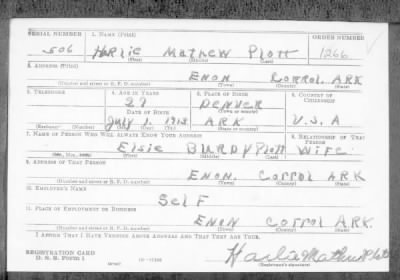 SERIAL NUMBER 1. NAME (Print) ORDER NUMBER
506 Harlie Mathew Plott 1266
(First) (Middle) (Last)
2. ADDRESS (Print)
ENON Corrol ARK
(Number and street or R. F. D. number) (Town) (County) (State)
3. TELEPHONE 4. AGE IN YEARS 5. PLACE OF BIRTH 6. COUNTRY OF CITIZENSHIP
27 DENVER
DATE OF BIRTH (Town or county)
July 1. 1913 ARK U.S.A
(Exchange) (Number) (Mo.) (Day) (Yr.) (State or country)
7. NAME OF PERSON WHO WILL ALWAYS KNOW YOUR ADDRESS 8. RELATIONSHIP OF THAT PERSON
Elsie Plott Wife
(Mr., Mrs., Miss) (First) (Middle) (Last)
9. ADDRESS OF THAT PERSON
ENON. Corrol ARK
(Number and street or R. F. D. number) (Town) (County) (State)
10. EMPLOYER'S NAME
Self
11. PLACE OF EMPLOYMENT OR BUSINESS
ENON Corrol ARK.
(Number and street or R. F. D. number) (Town) (County) (State)
I AFFIRM THAT I HAVE VERIFIED ABOVE ANSWERS AND THAT THEY ARE TRUE.
REGISTRATION CARD
D. S. S. Form 1 Harlie Mathew Plott
(Registrant's signature)